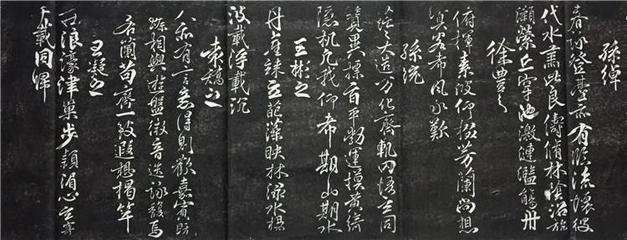 孫綽
春詠登臺亦有臨流懷彼
伐木肅此良儔脩林蔭沼旋
瀨縈丘穿池激漣濫觴舟
徐豐之
俯揮素波仰掇芳蘭尚想
嘉客希風永歎
孫統
茫々大造万化齊軌罔悟玄同
競異摽旨平勃運謀黃綺
隱机凡我仰希期山期水
王彬之
丹崖竦立葩藻映林淥水揚
波載浮載沉
袁嶠之
人亦有言意得則歡嘉賓既
臻相與遊盤微音迭詠馥焉
若蘭苟齊一致遐想揭竿
王凝之
浪濠津巢步潁湄心寄
千載同歸